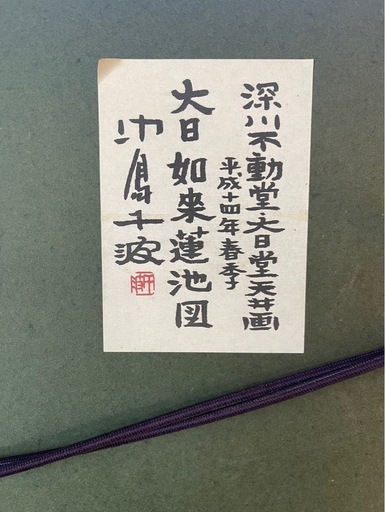 深川不動堂・大日堂天井画
平成十四年春季
大日如来蓮池図
中島千波